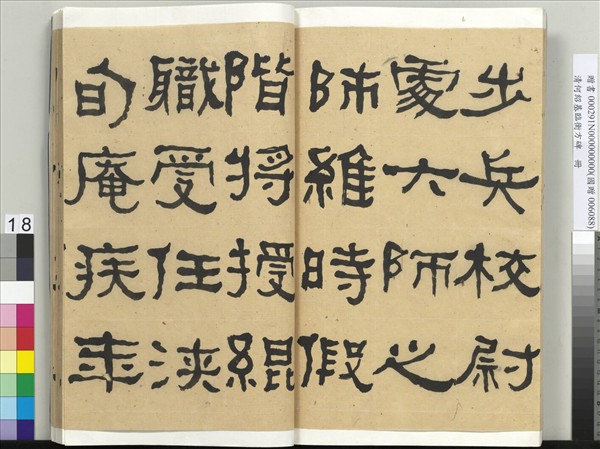 步兵校尉
處六師之
帥維時假
階將授緄
職受任浹
旬庵疾年
贈書 000291N000000000(國贈 006088)
清何紹基臨衡方碑 冊
18